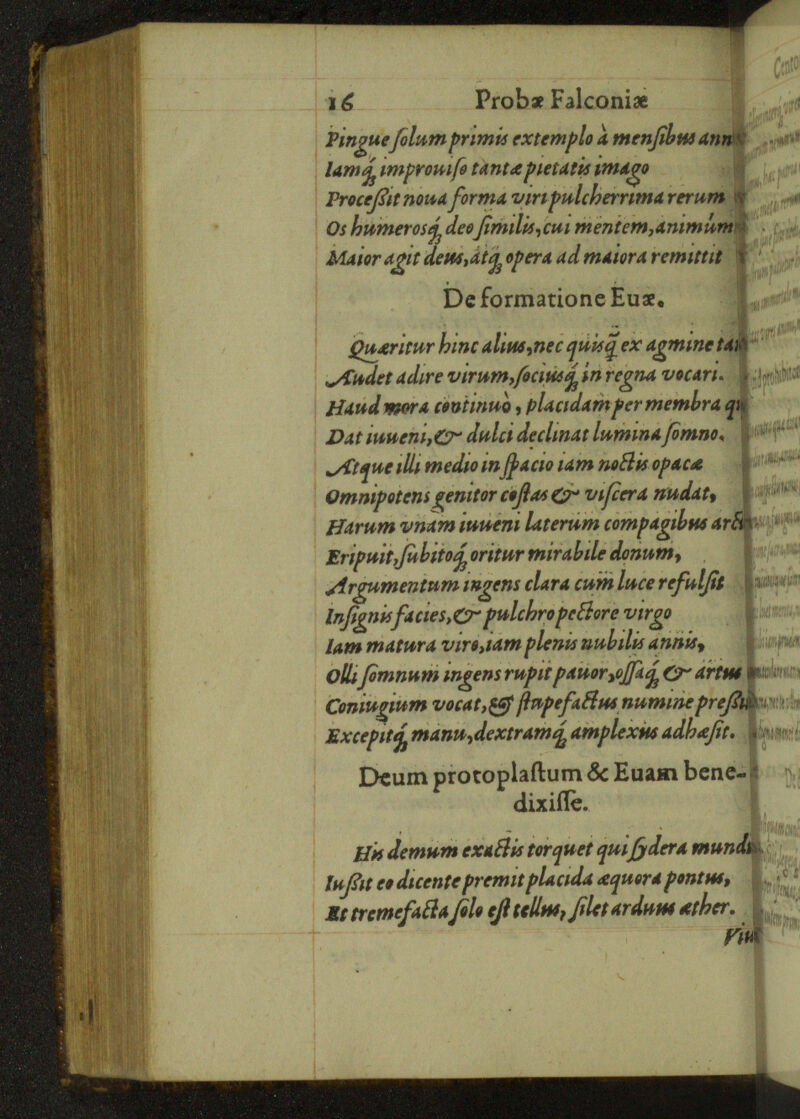 16 Probæ Falconiæ
Pingue ſolum primis extemplo à menſibus ann
Iamq́; improuiſo tantæ pietatis imago
Proceſsit noua forma viri pulcherrima rerum
Os humerosq́; deo ſimilis, cui mentem, animum
Maior agit deus, atq́; opera ad maiora remittit
De formatione Euæ.
Quæritur hinc alius, nec quisq́; ex agmine tan
Audet adire virum, ſociusq́; in regna vocari.
Haud mora continuò, placidam per membra qu
Dat iuueni, & dulci declinat lumina ſomno.
Atque illi medio in ſpacio iam noctis opacæ
Omnipotens genitor coſtas & viſcera nudat,
Harum vnam iuueni laterum compagibus arct
Eripuit, ſubitoq́; oritur mirabile donum,
Argumentum ingens clara cum luce refulſit
Inſignis facies, & pulchro pectore virgo
Iam matura viro, iam plenis nubilis annis,
Olli ſomnum ingens rupit pauor, oſſaq́; & artus
Coniugium vocat, & ſtupefactus numine preſſi
Excepitq́; manu, dextramq́; amplexus adhæſit.
Deum protoplaſtum & Euam bene-
dixiſſe.
His demum exactis torquet qui ſydera mundi
Iuſsit eo dicente premit placida æquora pontus,
Et tremefacta ſolo eſt tellus, ſilet arduus æther.
Viu